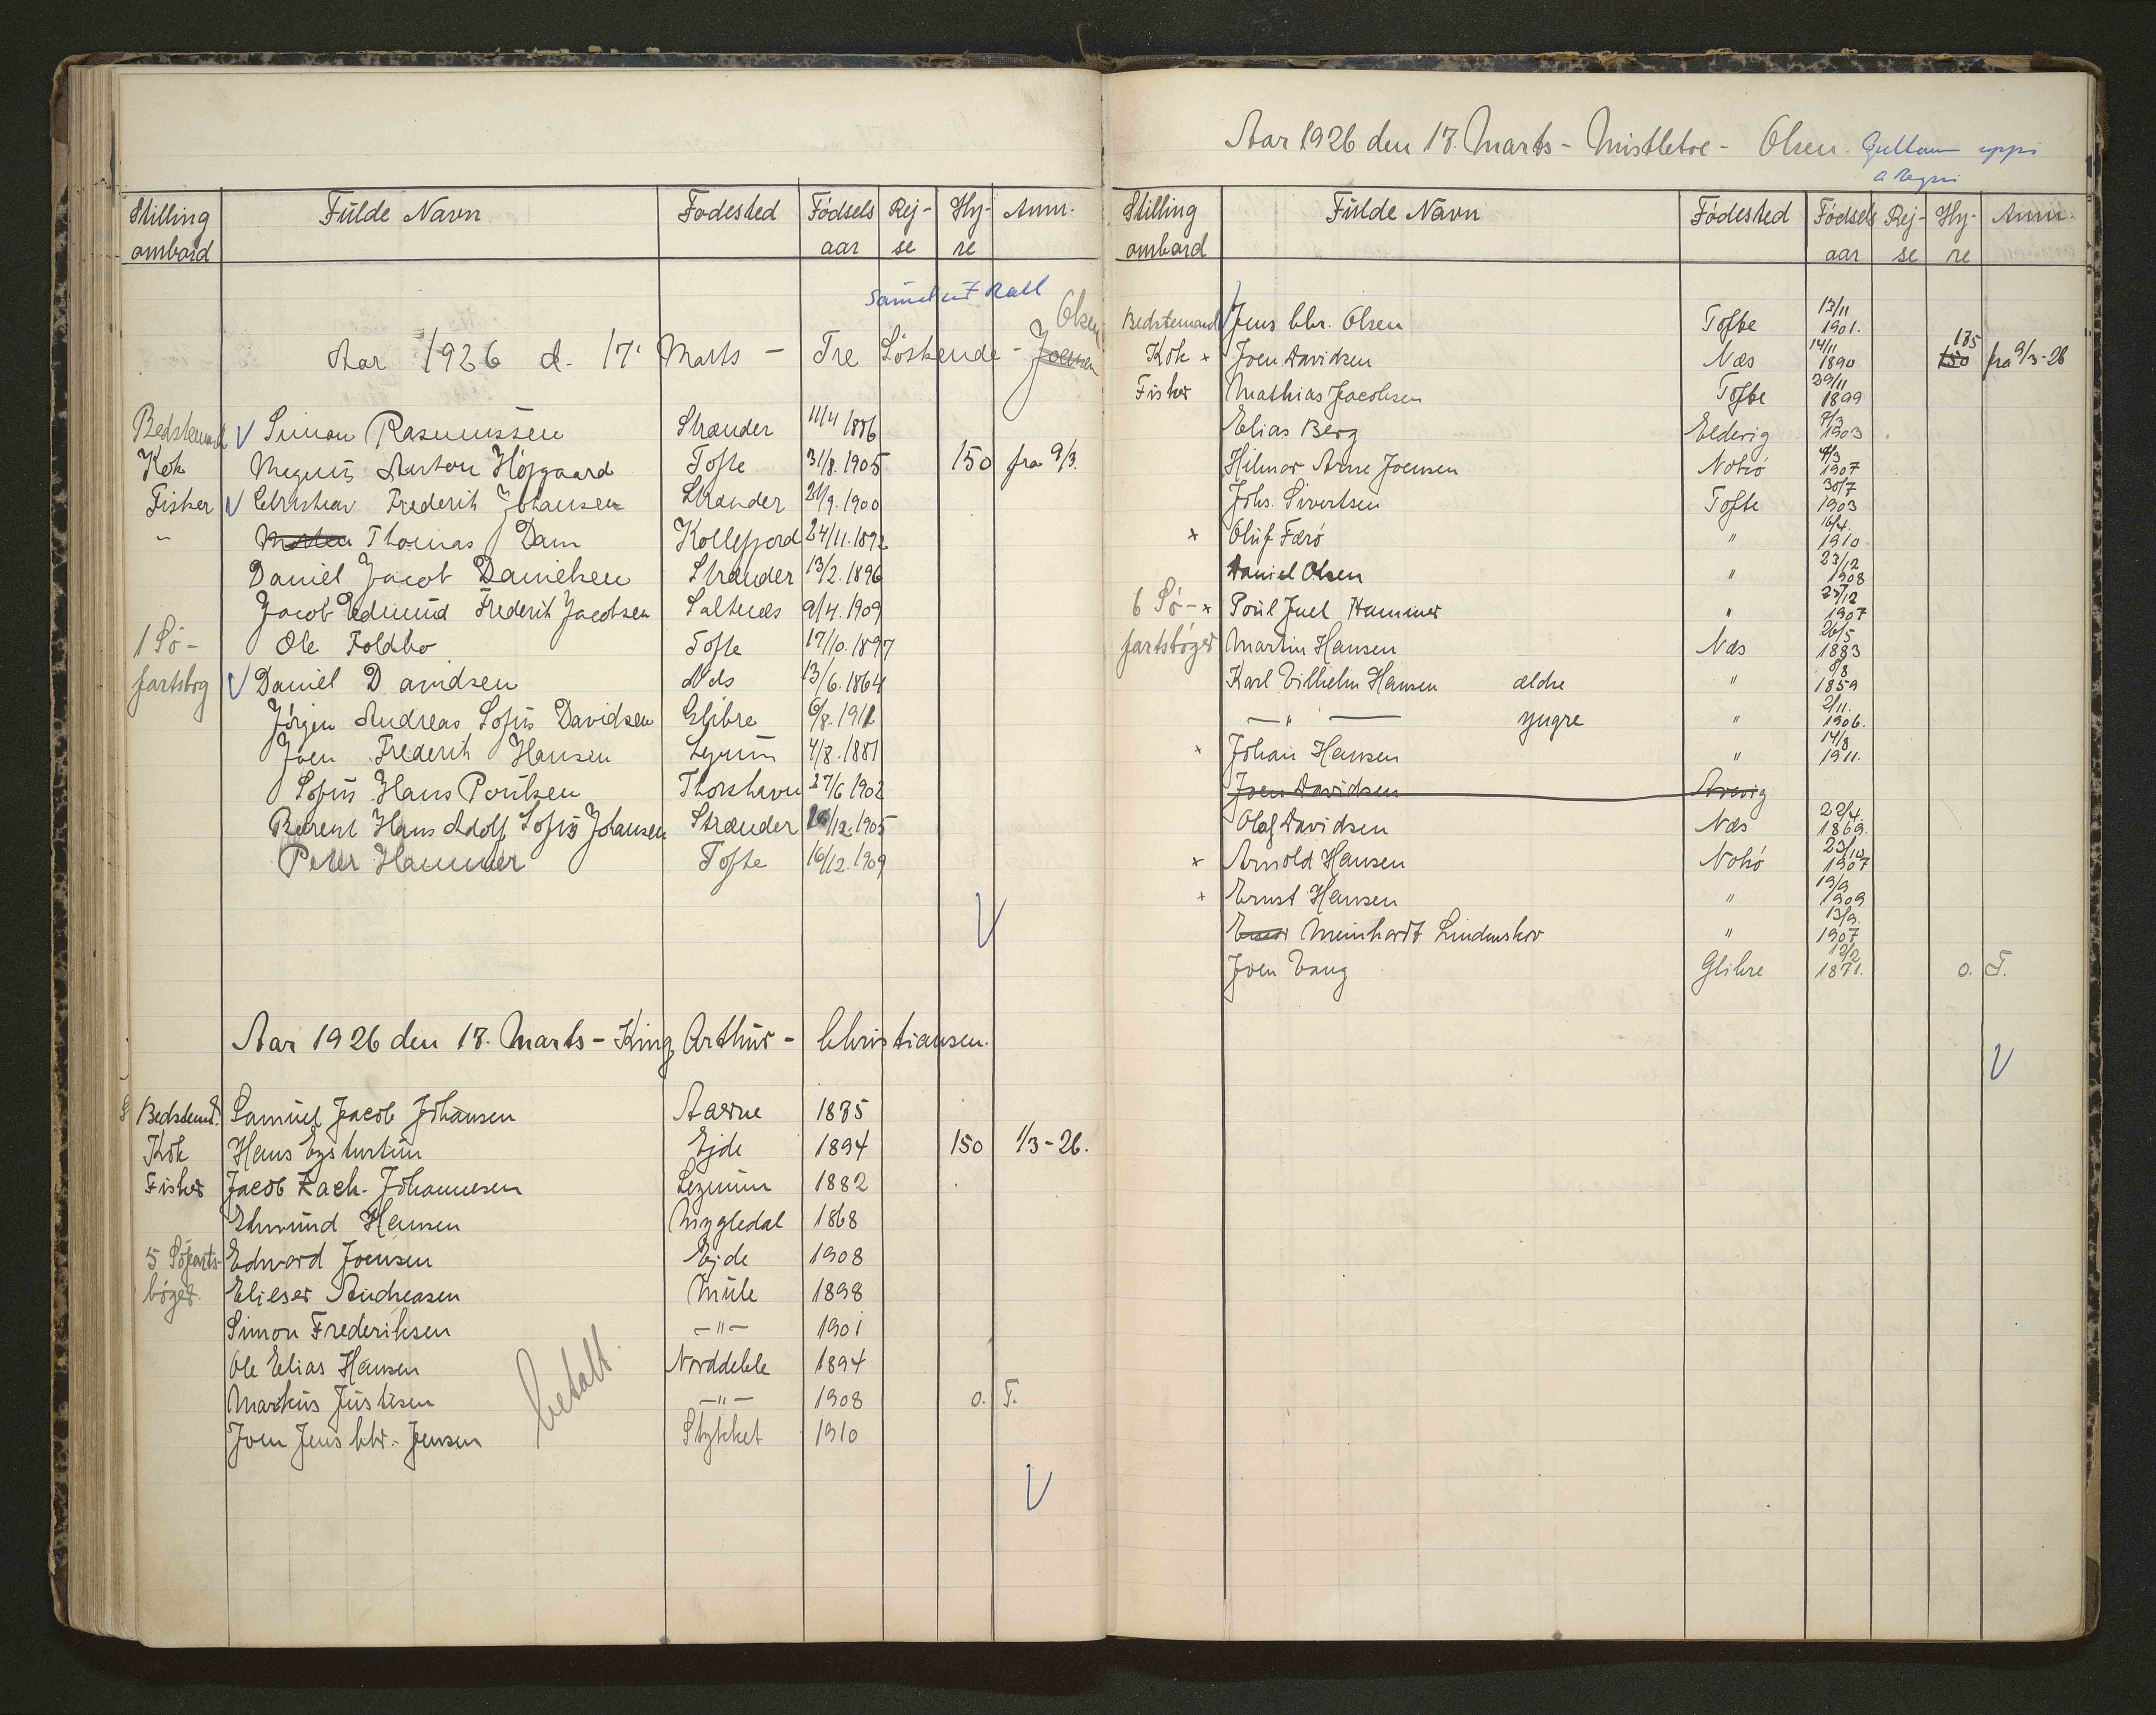 Stilling ombord Fulde Navn Fødested Fødsels aar Rej- se Hy- re Anm.
Olsen
Aar 1926 d. 17' Marts - Tre Söskende - Joensen
Bedstemand V Simon Rasmussen Strænder 11/4 1886
Kok Magnus Anton Højgaard Tofte 31/8. 1905 150 fra 9/3.
Fisker V Christian Frederik Johansen Strænder 21/9. 1900
" Morten Thomas Dam Kollefjord 24/11. 1892
Daniel Jacob Danielsen Strænder 13/2. 1896
Jacob Edmund Frederik Jacobsen Saltnes 9/4. 1909
1 Sö- Ole Foldbo Tofte 17/10. 1897
fartsbog V Daniel Davidsen Næs 13/6. 1864
Jörgen Andreas Sofus Davidsen Glibre 6/8. 1911
Joen Frederik Hansen Lejnum 4/8. 1881
Sofus Hans Poulsen Thorshavn 27/6 1902
Berent Hans Adolf Sofus Johansen Strænder 26/12. 1905
Peter Hammer Tofte 16/12. 1909
V
Aar 1926 den 18. Marts - King Arthur - Christiansen.
Bedstemd. Samuel Jacob Johansen Aaerne 1885
Kok Hans Eysturtun Ejde 1894 150 1/3-26.
Fisker Jacob Zach. Johannesen Lejnum 1882
Ehmund Hansen Mygledal 1868
5 Söfarts- Edward Joensen Ejde 1908
böger. Elieser Andreasen Mule 1898
Simon Frederiksen -"- 1901
Ole Elias Hansen Norddeble 1894
betalt.
Markus Justesen -"- 1908 0. F.
Joen Jens Chr. Jensen Stykket 1910
V
Aar 1926 den 18. Marts - Mistletoe - Olsen. uppi
Stilling ombord Fulde Navn Fødested Fødsels aar Rej- se Hy- re Anm.
Bedstemand V Jens Chr. Olsen Tofte 13/11 1901.
Kok x Joen Davidsen Næs 14/11 1890 150 185 fra 9/3-26
Fisker Mathias Jacobsen Tofte 29/11 1899
Elias Berg Eldevig 7/3 1903
Hilmar Arne Joensen Nolsö 4/3 1907
Johs. Sivertsen Tofte 30/7 1903
x Oluf Færö " 16/4. 1910
Daniel Olsen " 23/12 1908
6 Sö- x Poul Juel Hammer " 25/12 1907
fartsböger Martin Hansen Næs 26/5 1883
Karl Vilhelm Hansen ældre " 8/8 1859
-"- yngre " 2/11. 1906.
x Johan Hansen " 14/8 1911.
Joen Davidsen Arevig
Olaf Davidsen Næs 22/4. 1869.
x Arnold Hansen Nolsö 23/10 1907
x Ernst Hansen " 19/9 1909
Meinhardt Lindenskov " 13/9. 1907
Joen Vang Glibre 19/2 1871. 0. F.
V